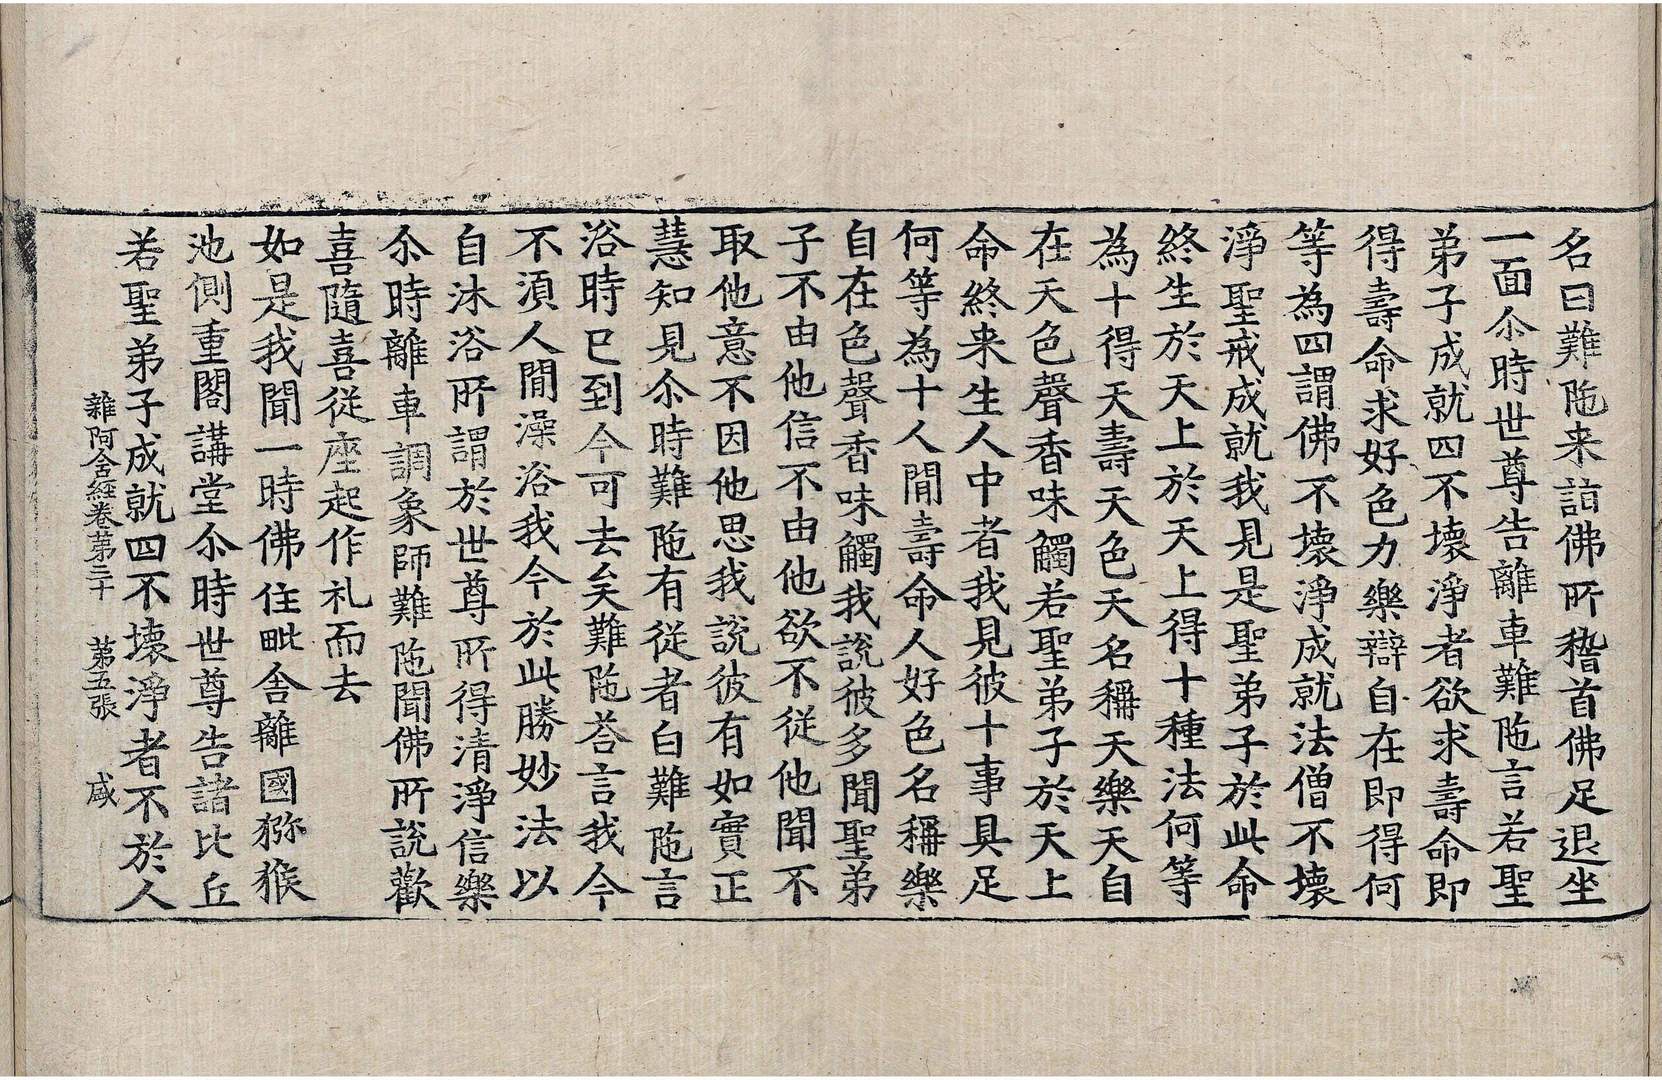 名曰難陁来詣佛所稽首佛足退坐
一面尒時世尊告離車難陁言若聖
弟子成就四不壞淨者欲求壽命即
得壽命求好色力樂辯自在即得何
等為四謂佛不壞淨成就法僧不壞
淨聖戒成就我見是聖弟子於此命
終生於天上於天上得十種法何等
為十得天壽天色天名稱天樂天自
在天色聲香味觸若聖弟子於天上
命終来生人中者我見彼十事具足
何等為十人閒壽命人好色名稱樂
自在色聲香味觸我說彼多聞聖弟
子不由他信不由他欲不從他聞不
取他意不因他思我說彼有如實正
慧知見尒時難陁有從者白難陁言
浴時已到今可去矣難陁荅言我今
不湏人閒澡浴我今於此勝妙法以
自沐浴所謂於世尊所得清淨信樂
尒時離車調象師難陁聞佛所說歡
喜隨喜從座起作礼而去
如是我聞一時佛住毗舍離國獼猴
池側重閣講堂尒時世尊告諸比丘
若聖弟子成就四不壞淨者不於人
雜阿含經卷第三十 第五張 盛